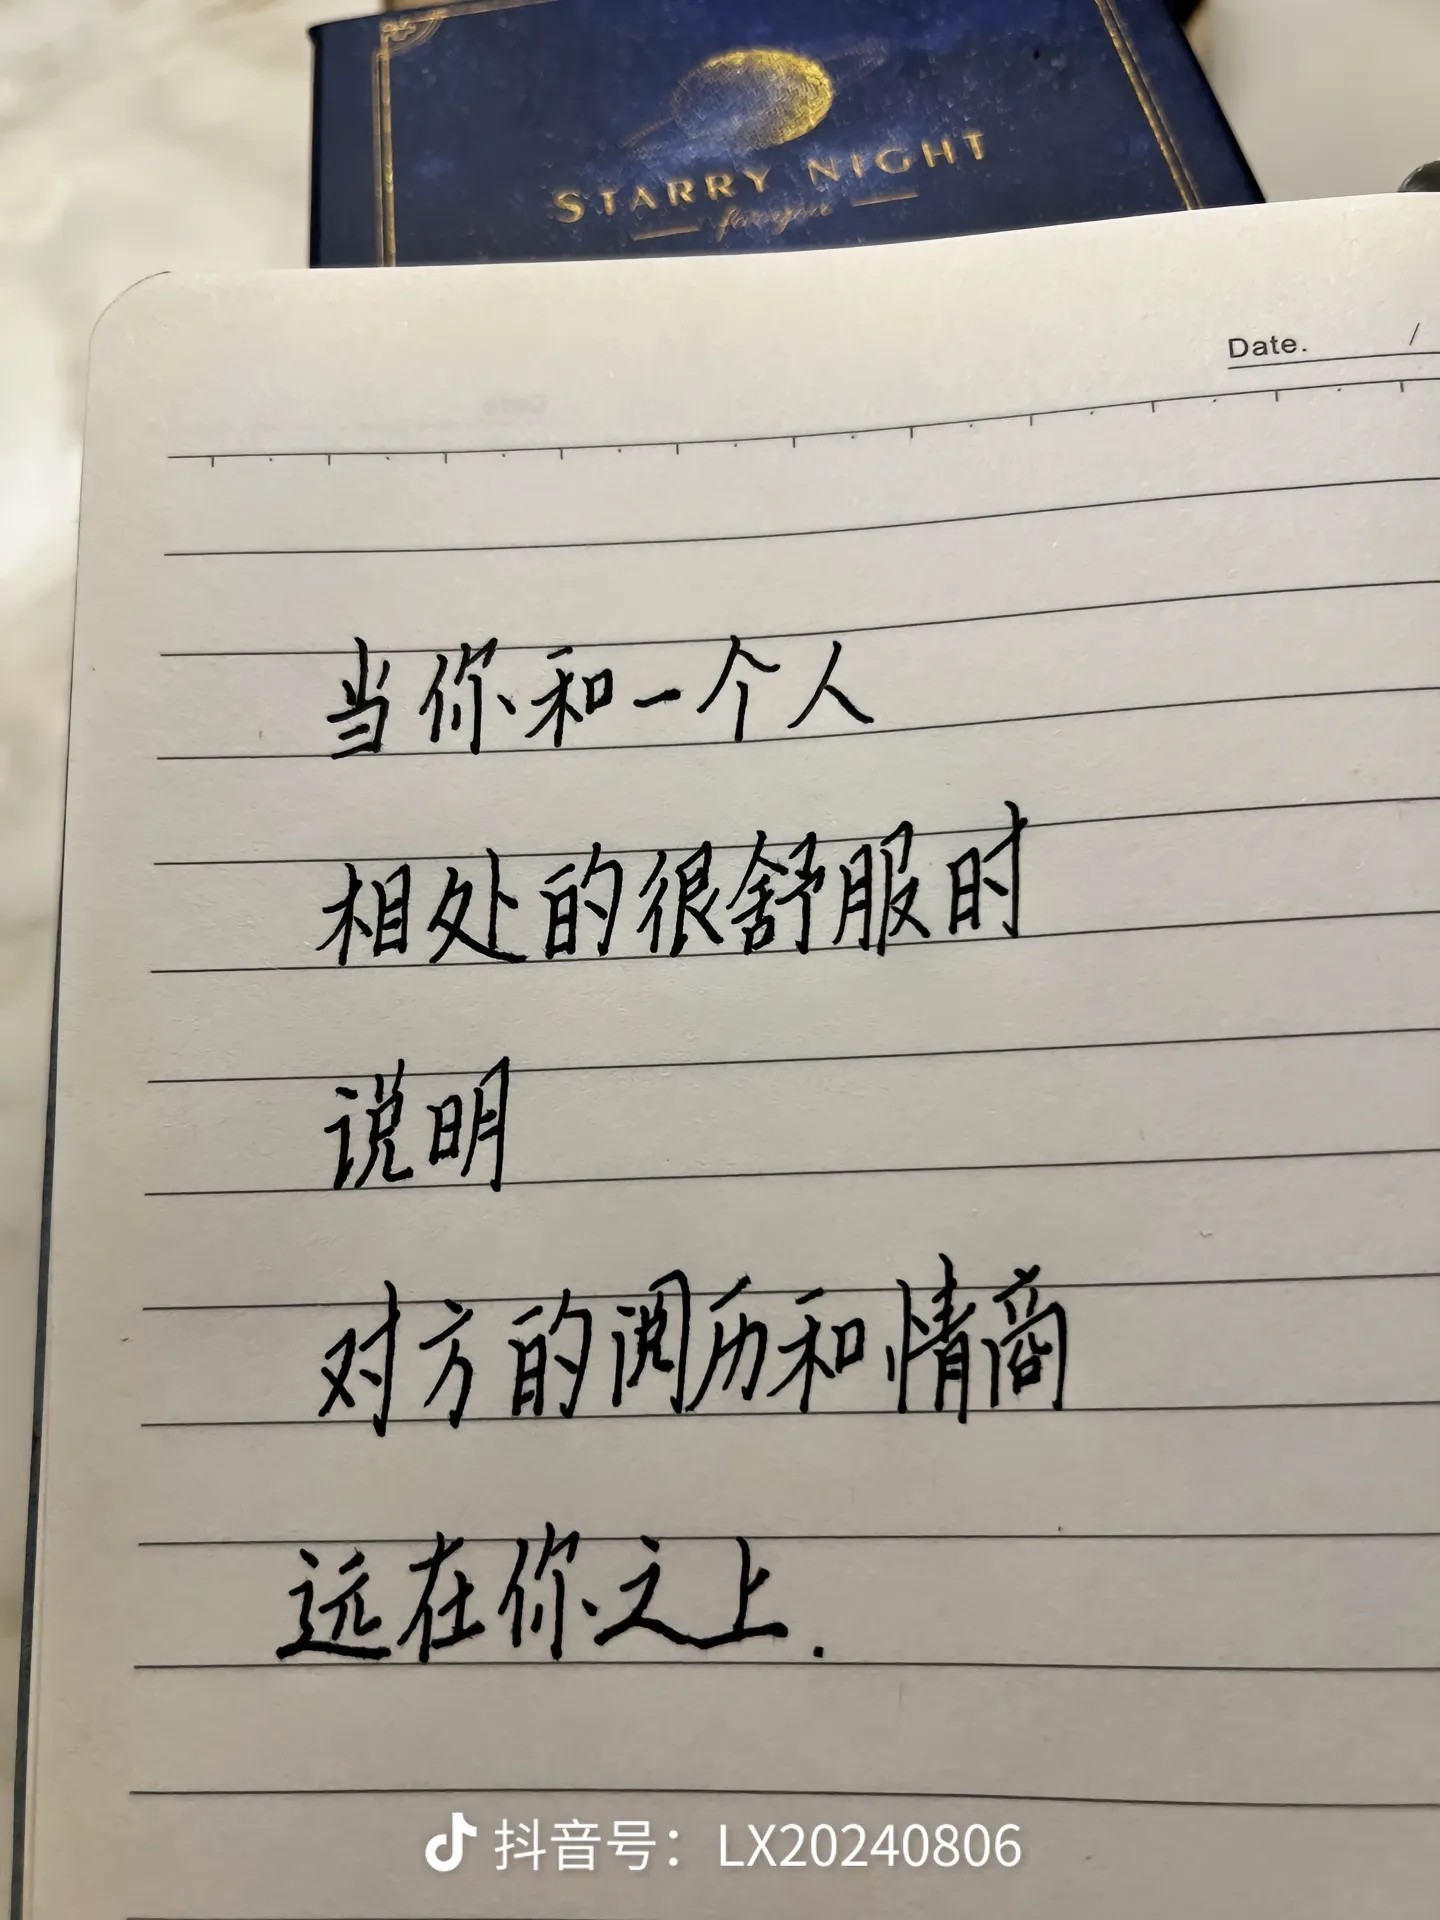 STARRY NIGHT
for you
Date. /
当你和一个人
相处的很舒服时
说明
对方的阅历和情商
远在你之上.
抖音号：LX20240806